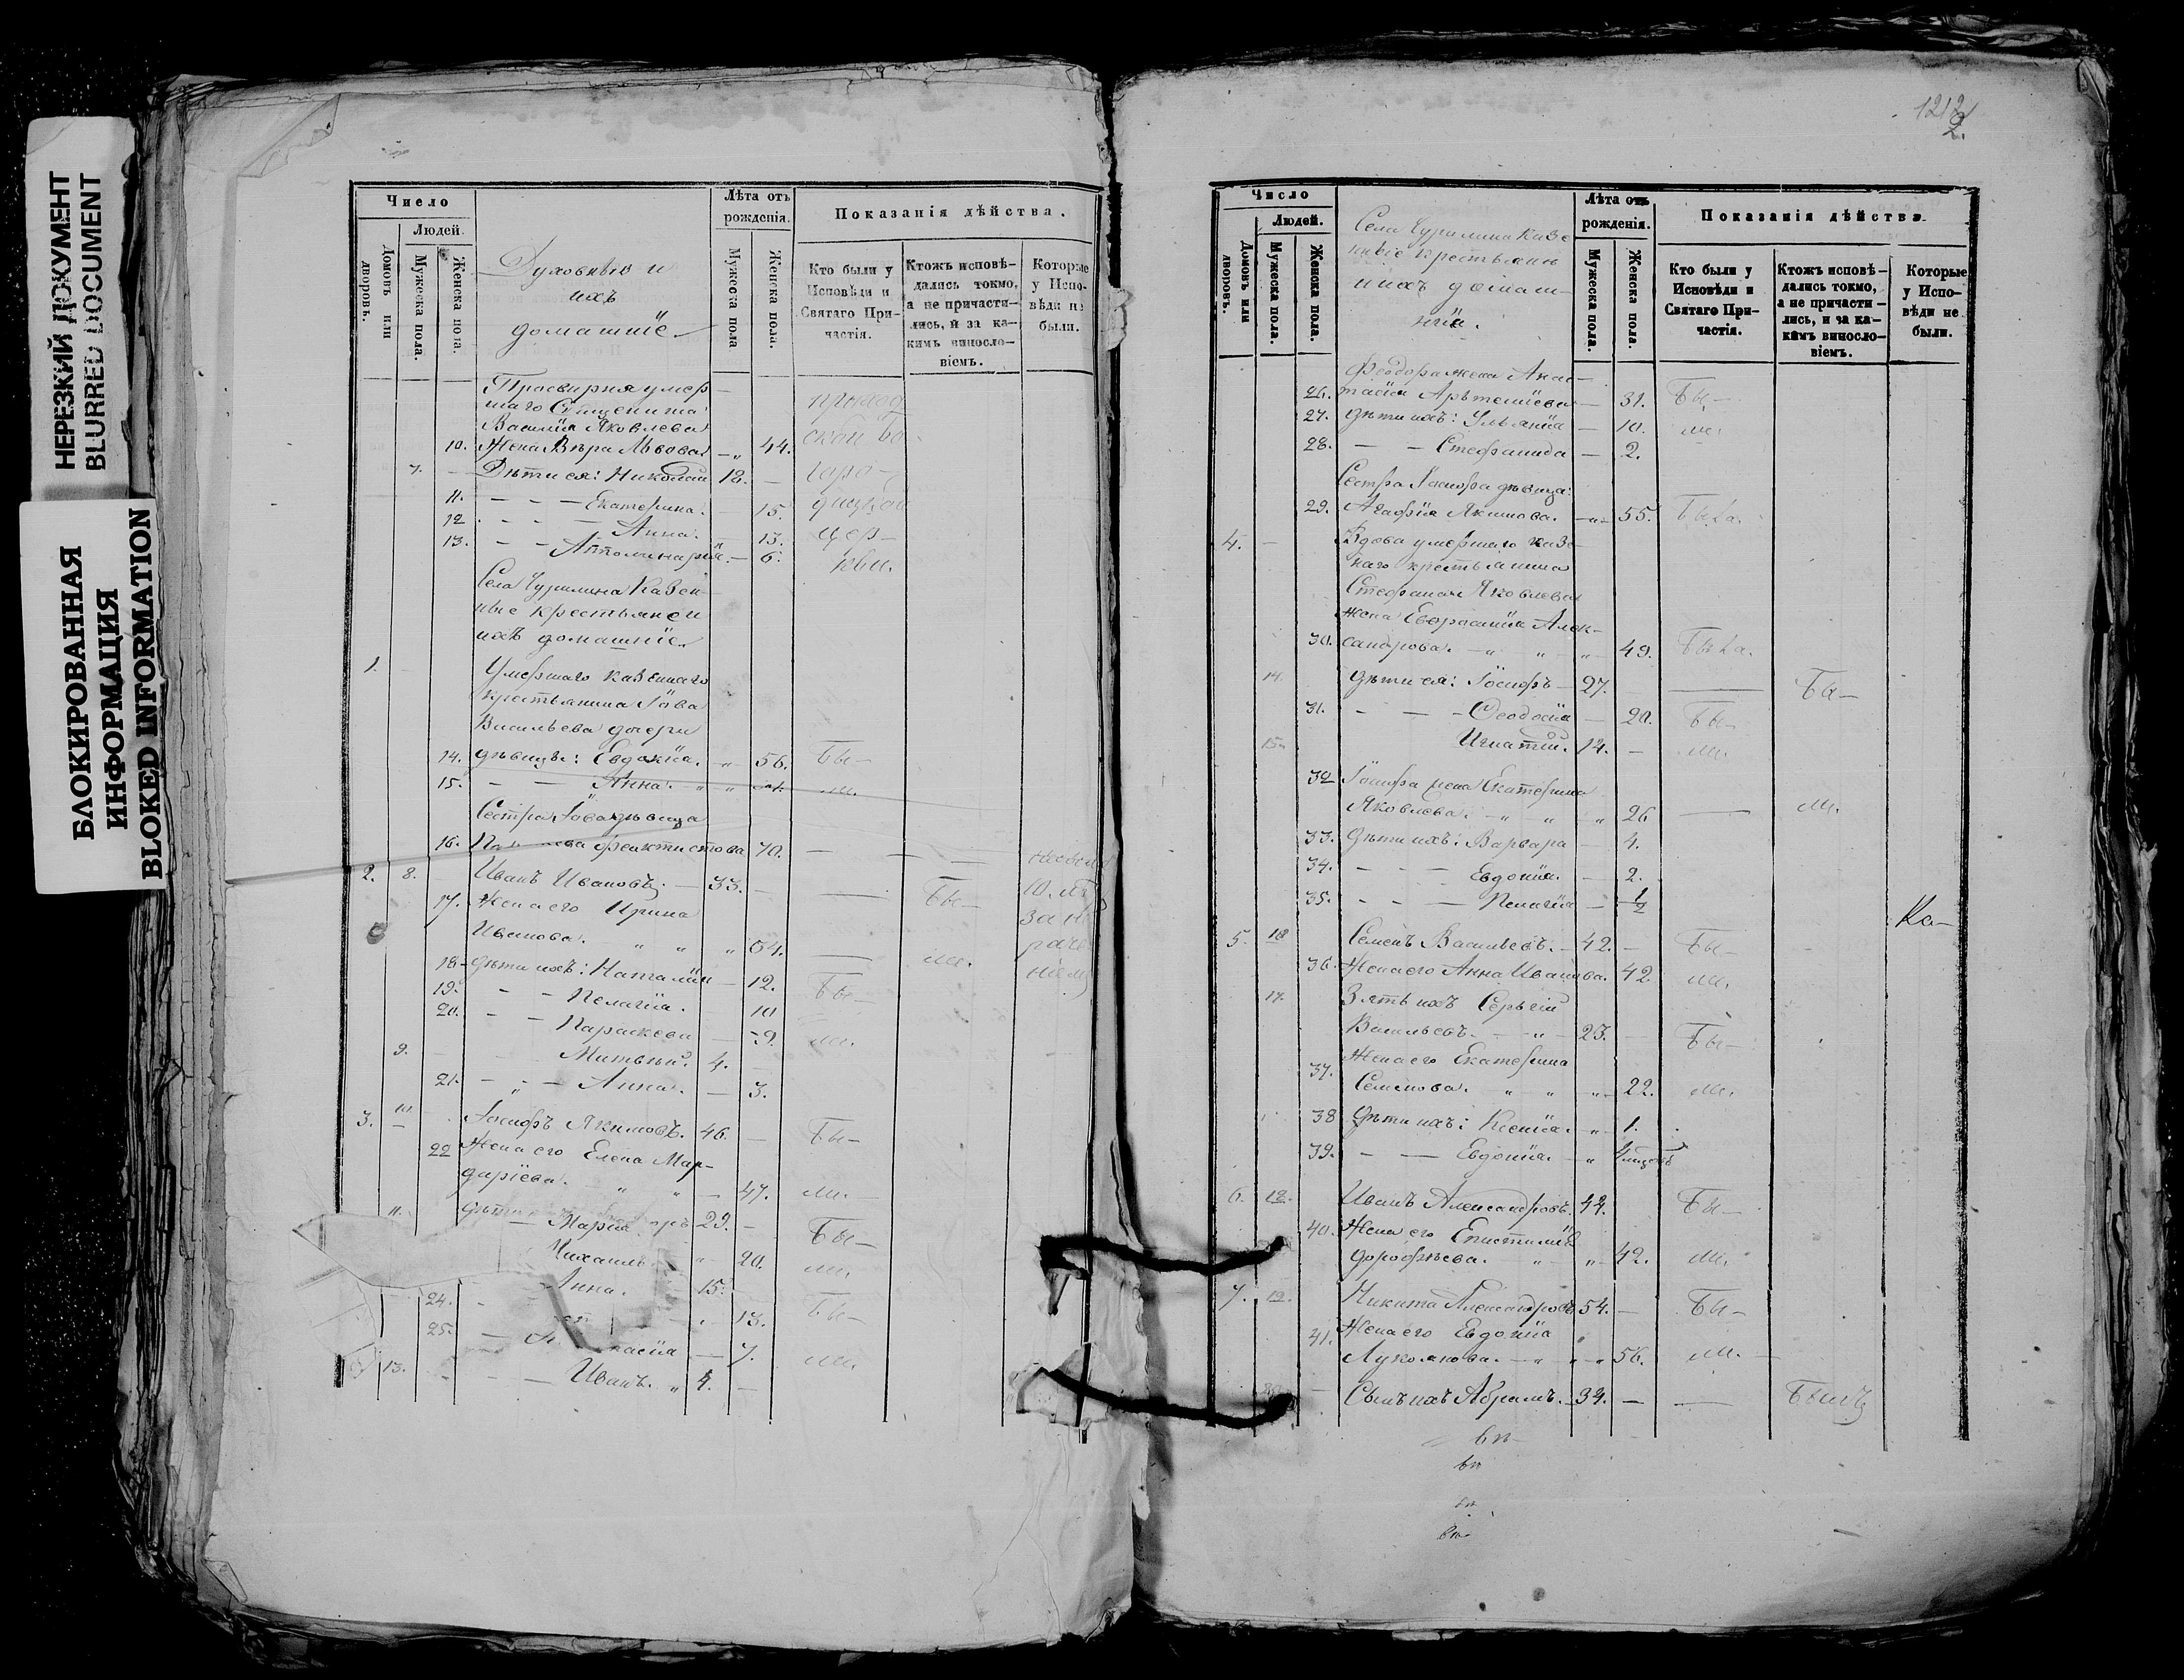 НЕРЕЗКИЙ ДОКУМЕНТ
BLURRED DOCUMENT
БЛОКИРОВАННАЯ
ИНФОРМАЦИЯ
BLOKED INFORMATION
Число
Людей.
Домовъ или дворовъ.
Мужеска пола.
Женска пола.
Духовные и
ихъ
домашніе
Лѣта отъ рожденія.
Мужеска пола
Женска пола.
Показанія дѣйства.
Кто были у Исповѣди и Святаго Причастія.
Ктожъ исповѣ-
дались токмо,
а не причасти-
лись, и за ка-
кимъ винносло-
віемъ.
Которые
у Испо-
вѣди не
были.
Просвирня умер
шаго
Василія Яковлева
10. Жена Вѣра Львова 44.
7. Дѣти ея: Николай 12.
11. Екатерина. 15.
12. Анна. 13.
13. Апполинарія. 6.
приход
ской Бо
горо-
дицкой
цер-
кви.
Села Чурилина Казен-
ные крестьяне и
ихъ домашніе
1. Умершаго казеннаго
крестьянина Іова
Васильева дочери
14. дѣвицы: Евдокія. 56. Бы-
15. Анна. ли.
Сестра Іова дѣвица
16. Феоктистова 70.
2. 8. Иванъ Ивановъ 33. Бы-
17. Жена его Ирина
Иванова. 34. ли.
18. дѣти ихъ: Наталія 12. Бы-
19. Пелагія. 10
20. Параскева 9. ли.
9. Матвѣй 4.
21. Анна. 3.
3. 10. Іосифъ Якимовъ. 46. Бы-
22 Жена его Елена Мар-
даріева. 47. ли.
11. дѣти 23. Бы-
Марія 20. ли.
Михаилъ 15.
24. Анна. 13. Бы-
25. 7. ли.
13. Иванъ. 4.
1212
2.
Число
Людей.
Домовъ или дворовъ.
Мужеска пола.
Женска пола.
Села Чурилина Казе
нные крестьяне
и ихъ домаш-
нія.
Лѣта отъ рожденія.
Мужеска пола.
Женска пола.
Показанія дѣйства.
Кто были у
Исповѣди и
Святаго При-
частія.
Ктожъ исповѣ-
дались токмо,
а не причасти-
лись, и за ка-
кимъ винносло-
віемъ.
Которые
у Испо-
вѣди не
были.
Феодора жена Анас-
26. тасія Артеміева 31. Бы-
27. дѣти ихъ: Ульянія 10. ли.
28. Стефанида 2.
Сестра Іосифа дѣвица:
29. Агафія Якимова. 55. Была.
4. Вдова умершаго казе-
наго крестьянина
Стефана Яковлева
жена Евфросинія Алек-
30. сандрова. 49. Была.
14. дѣти ея: Іосифъ 27. Бы-
31. Феодосія 20. Бы-
15. Игнатій. 14. ли.
32 Іосифа жена Екатерина
Яковлева. 26 ли.
33. дѣти ихъ: Варвара 4.
34. Евдокія. 2.
35. Пелагія 1/2
Ка-
5. 16 Семенъ Васильевъ. 42. Бы-
36. Жена его Анна Иванова. 42 ли.
17. Зять ихъ Сергій
Васильевъ. 23. Бы-
Жена его Екатерина
37. Семенова. 22. ли.
38 дѣти ихъ: Ксенія. 1.
39. Евдокія.
6. 18. Иванъ Александровъ. 44. Бы-
40. Жена его Епистимія
Дорофѣева. 42. ли.
7. 19. Никита Александровъ 54. Бы-
41. Жена его Евдокія
Лукоянова. 56. ли.
Сынъ ихъ Абрамъ. 34. Былъ